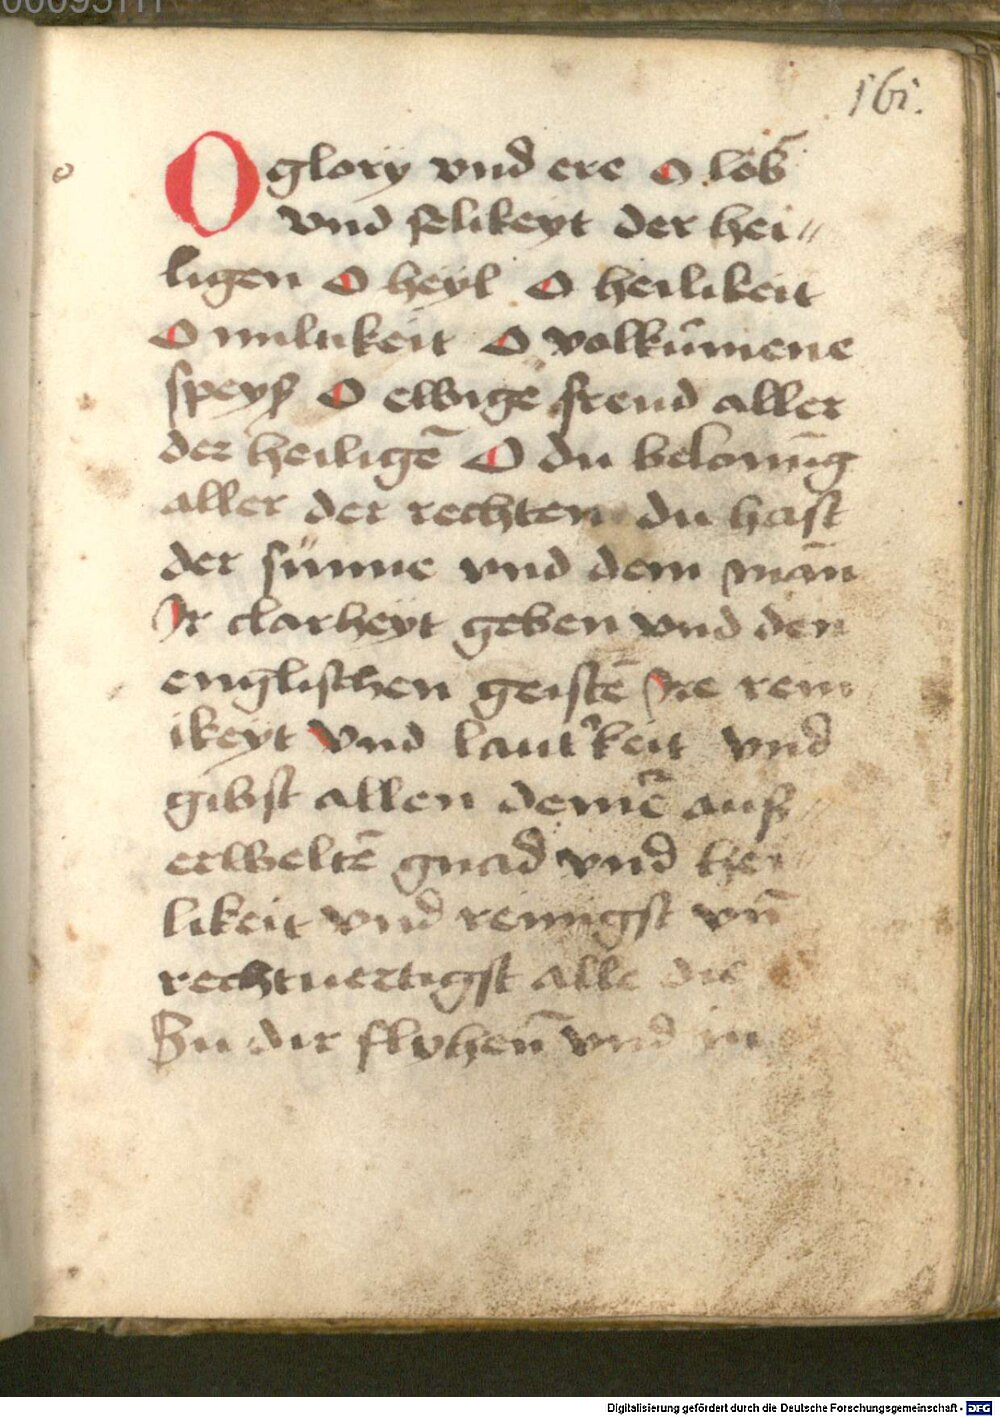 161.
O glory vnd ere O lob̄
vnd selikeyt der hei〃
ligen O heyl O heilikeit
O miltikeit O volkūmene
speyß O ewige freud aller
der heiligē O du belonūg
aller der rechten du hast
der sunne vnd dem mān
Ir clarheyt geben vnd den
englischen geistē Ire rein
ikeyt vnd laut'keit vnd
gibst allen deinē auß
erweltē gnad vnd hei
likeit vnd reinigst vn̄
rechtuertigst alle die
Zu dir flyhen̄ vnd in
Digitalisierung gefördert durch die Deutsche Forschungsgemeinschaft - DFG